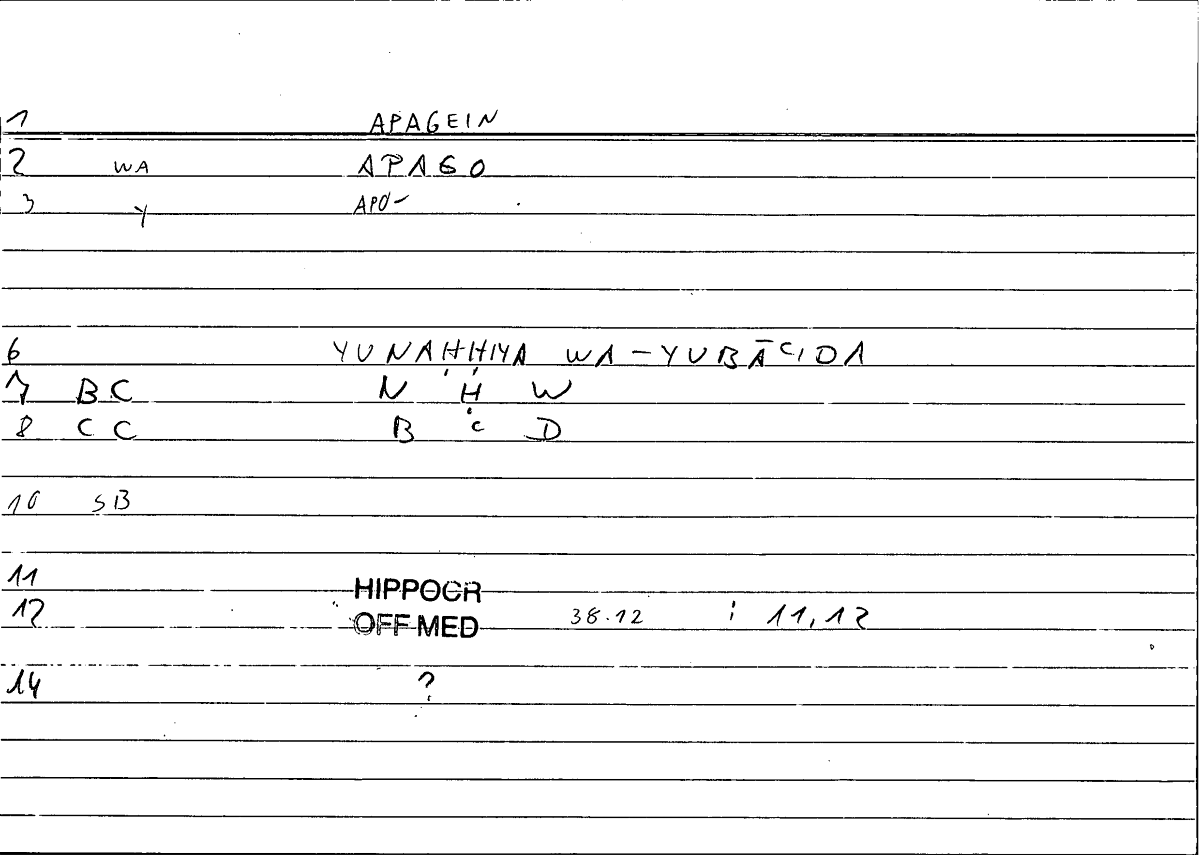 1 APAGEIN
2 WA APAGO
3 Y APO-
6 YUNAḤḤIYA WA-YUBĀCIDA
7 BC N Ḥ W
8 CC B c D
10 SB
11 HIPPOCR
12 OFF MED 38.12 ; 11,12
14 ?